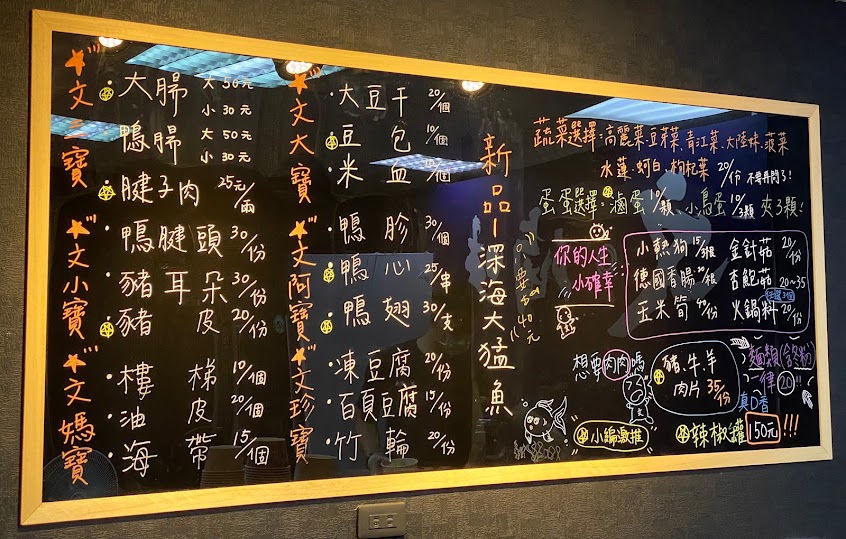 文三寶
大腸 大50元
小30元
鴨腸 大50元
小30元
腱子肉 25元/兩
文小寶
鴨腱頭 30/份
豬耳朵 30/份
豬皮 20/份
文媽寶
樓梯 10/個
油皮 20/個
海帶 15/個
文大寶
大豆干 20/個
豆包 10/個
米血
文阿寶
鴨胗 30/個
鴨心 25/串
鴨翅 30/支
文珍寶
凍豆腐 20/份
百頁豆腐 15/份
竹輪 20/份
新品-深海大猛魚
只要40元
蔬菜選擇:高麗菜、豆芽菜、青江菜、大陸妹、菠菜
水蓮、蚵白、枸杞葉 20/份 不要再問了!
蛋蛋選擇:滷蛋10/顆、小鳥蛋10/3顆 夾3顆!
你的人生
小確幸
小熱狗 15/3根 金針菇 20/份
德國香腸 20/根 杏鮑菇 20~35
玉米筍 40/份 火鍋料 20/份
想要肉肉嗎
豬、牛、羊
肉片 35/份
麵類(含冬粉)
一律20!!
真D香
小編激推
辣椒罐 150元!!!